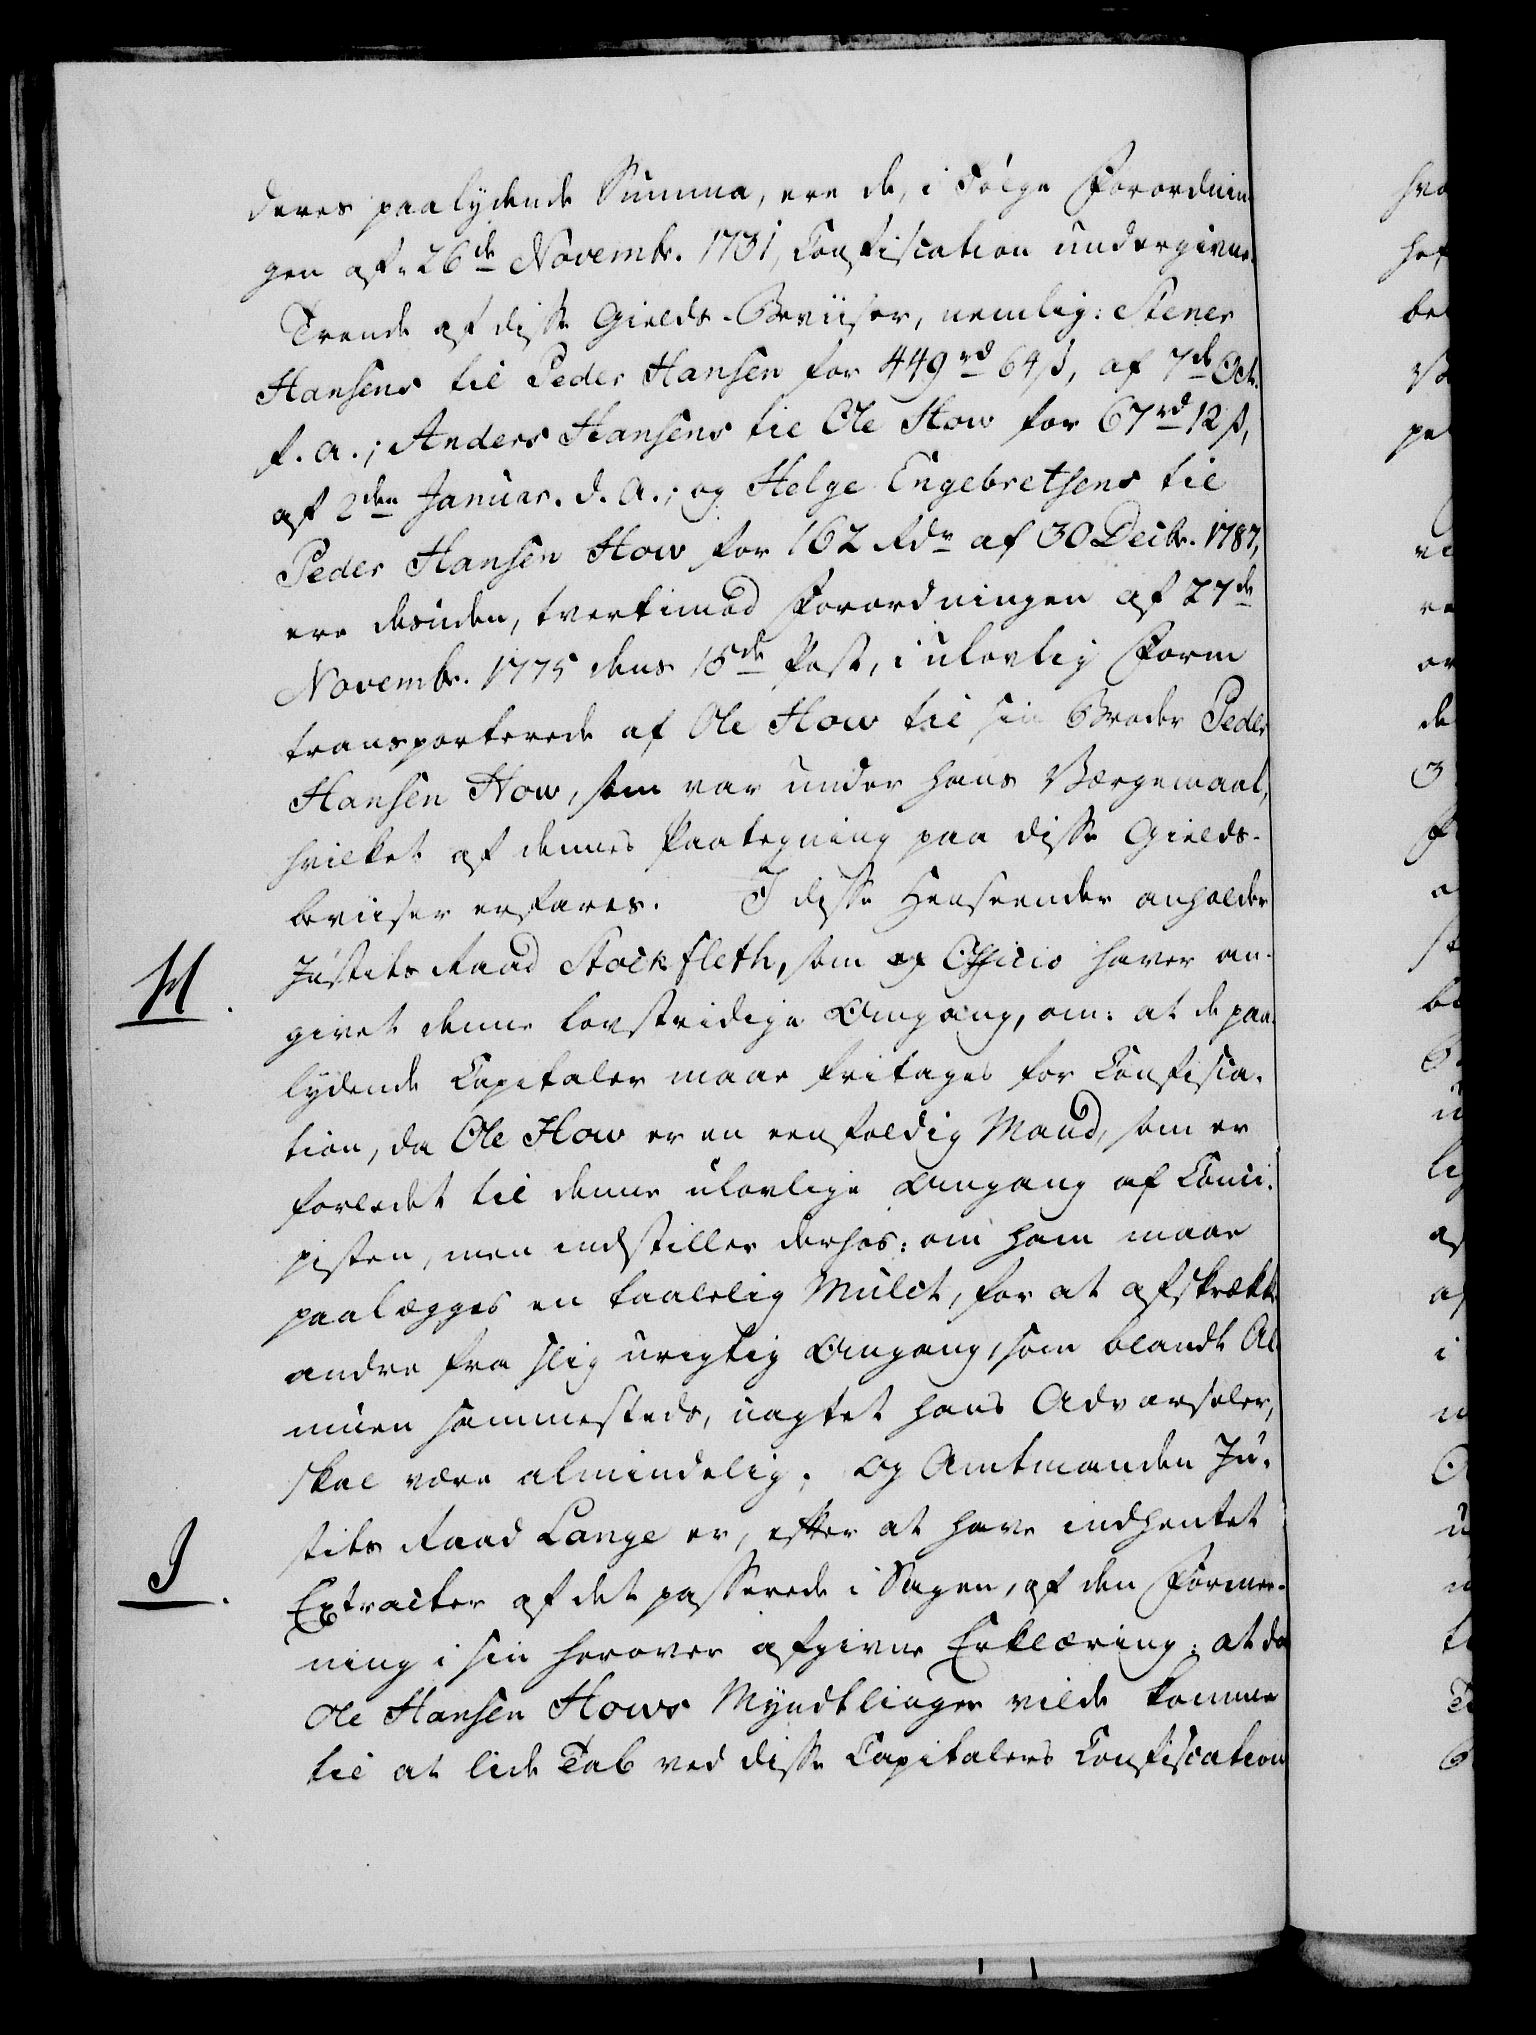 deres paalydende Summa, ere de, i Følge Forordnin-
gen af 26de Novembr. 1731, Confiscation undergivne.
Trende af disse Gields-Beviiser, nemlig: Stener
Hansens til Peder Hansen for 449 rd 64 ß, af 7de Octr.
f. a.; Anders Hansens til Ole How for 67 rd 12 ß,
af 2den Januar. d. A.; og Helge Engebretsens til
Peder Hansen How for 162 Rdr af 30 Decbr. 1787,
ere desuden, tvertimod Forordningen af 27de
Novembr. 1775 dens 15de Post, i ulovlig Form
transporterede af Ole How til sin Broder Peder
Hansen How, som var under hans Værgemaal,
hvilket af dennes Paategning paa disse Gields-
beviiser erfares. I disse Henseender anholder
H. Justits Raad Stockfleth, som ex Officio haver an-
givet denne lovstridige Omgang, om: at de paa-
lydende Capitaler maae fritages for Confisca-
tion, da Ole How er en eenfoldig Mand, som er
forledet til denne ulovlige Omgang af Conci-
pisten, men indstiller derhos: om ham maae
paalægges en taalelig Mulct, for at afskrække
andre fra slig urigtig Omgang, som blandt Al-
muen sammesteds, uagtet hans Advarseler,
skal være almindelig. Og Amtmanden Ju-
J. stits Raad Lange er, efter at have indhentet
Extracter af det passerede i Sagen, af den Formee-
ning i sin herover afgivne Erklæring: at da
Ole Hansen Hows Myndtlinger vilde komme
til at lide Tab ved disse Capitalers Confiscation